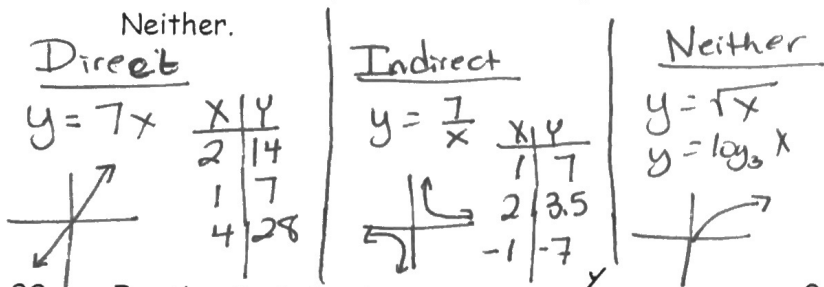 Neither.
Direct
y = 7x
X | Y
2 | 14
1 | 7
4 | 28
Indirect
y = 7/x
X | Y
1 | 7
2 | 3.5
-1 | -7
Neither
y = √x
y = log₃ x